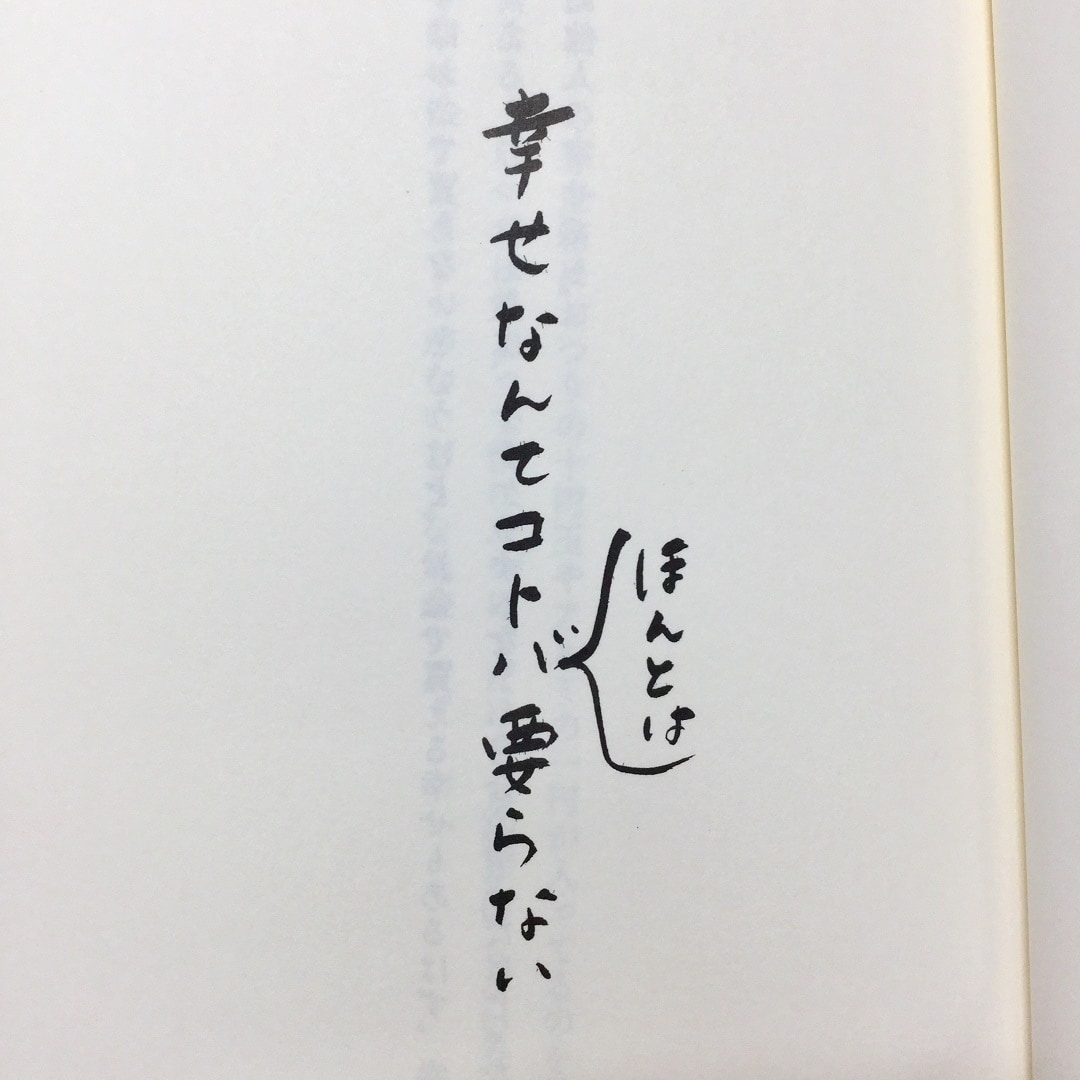 幸せなんてコトバ要らない
ほんとは